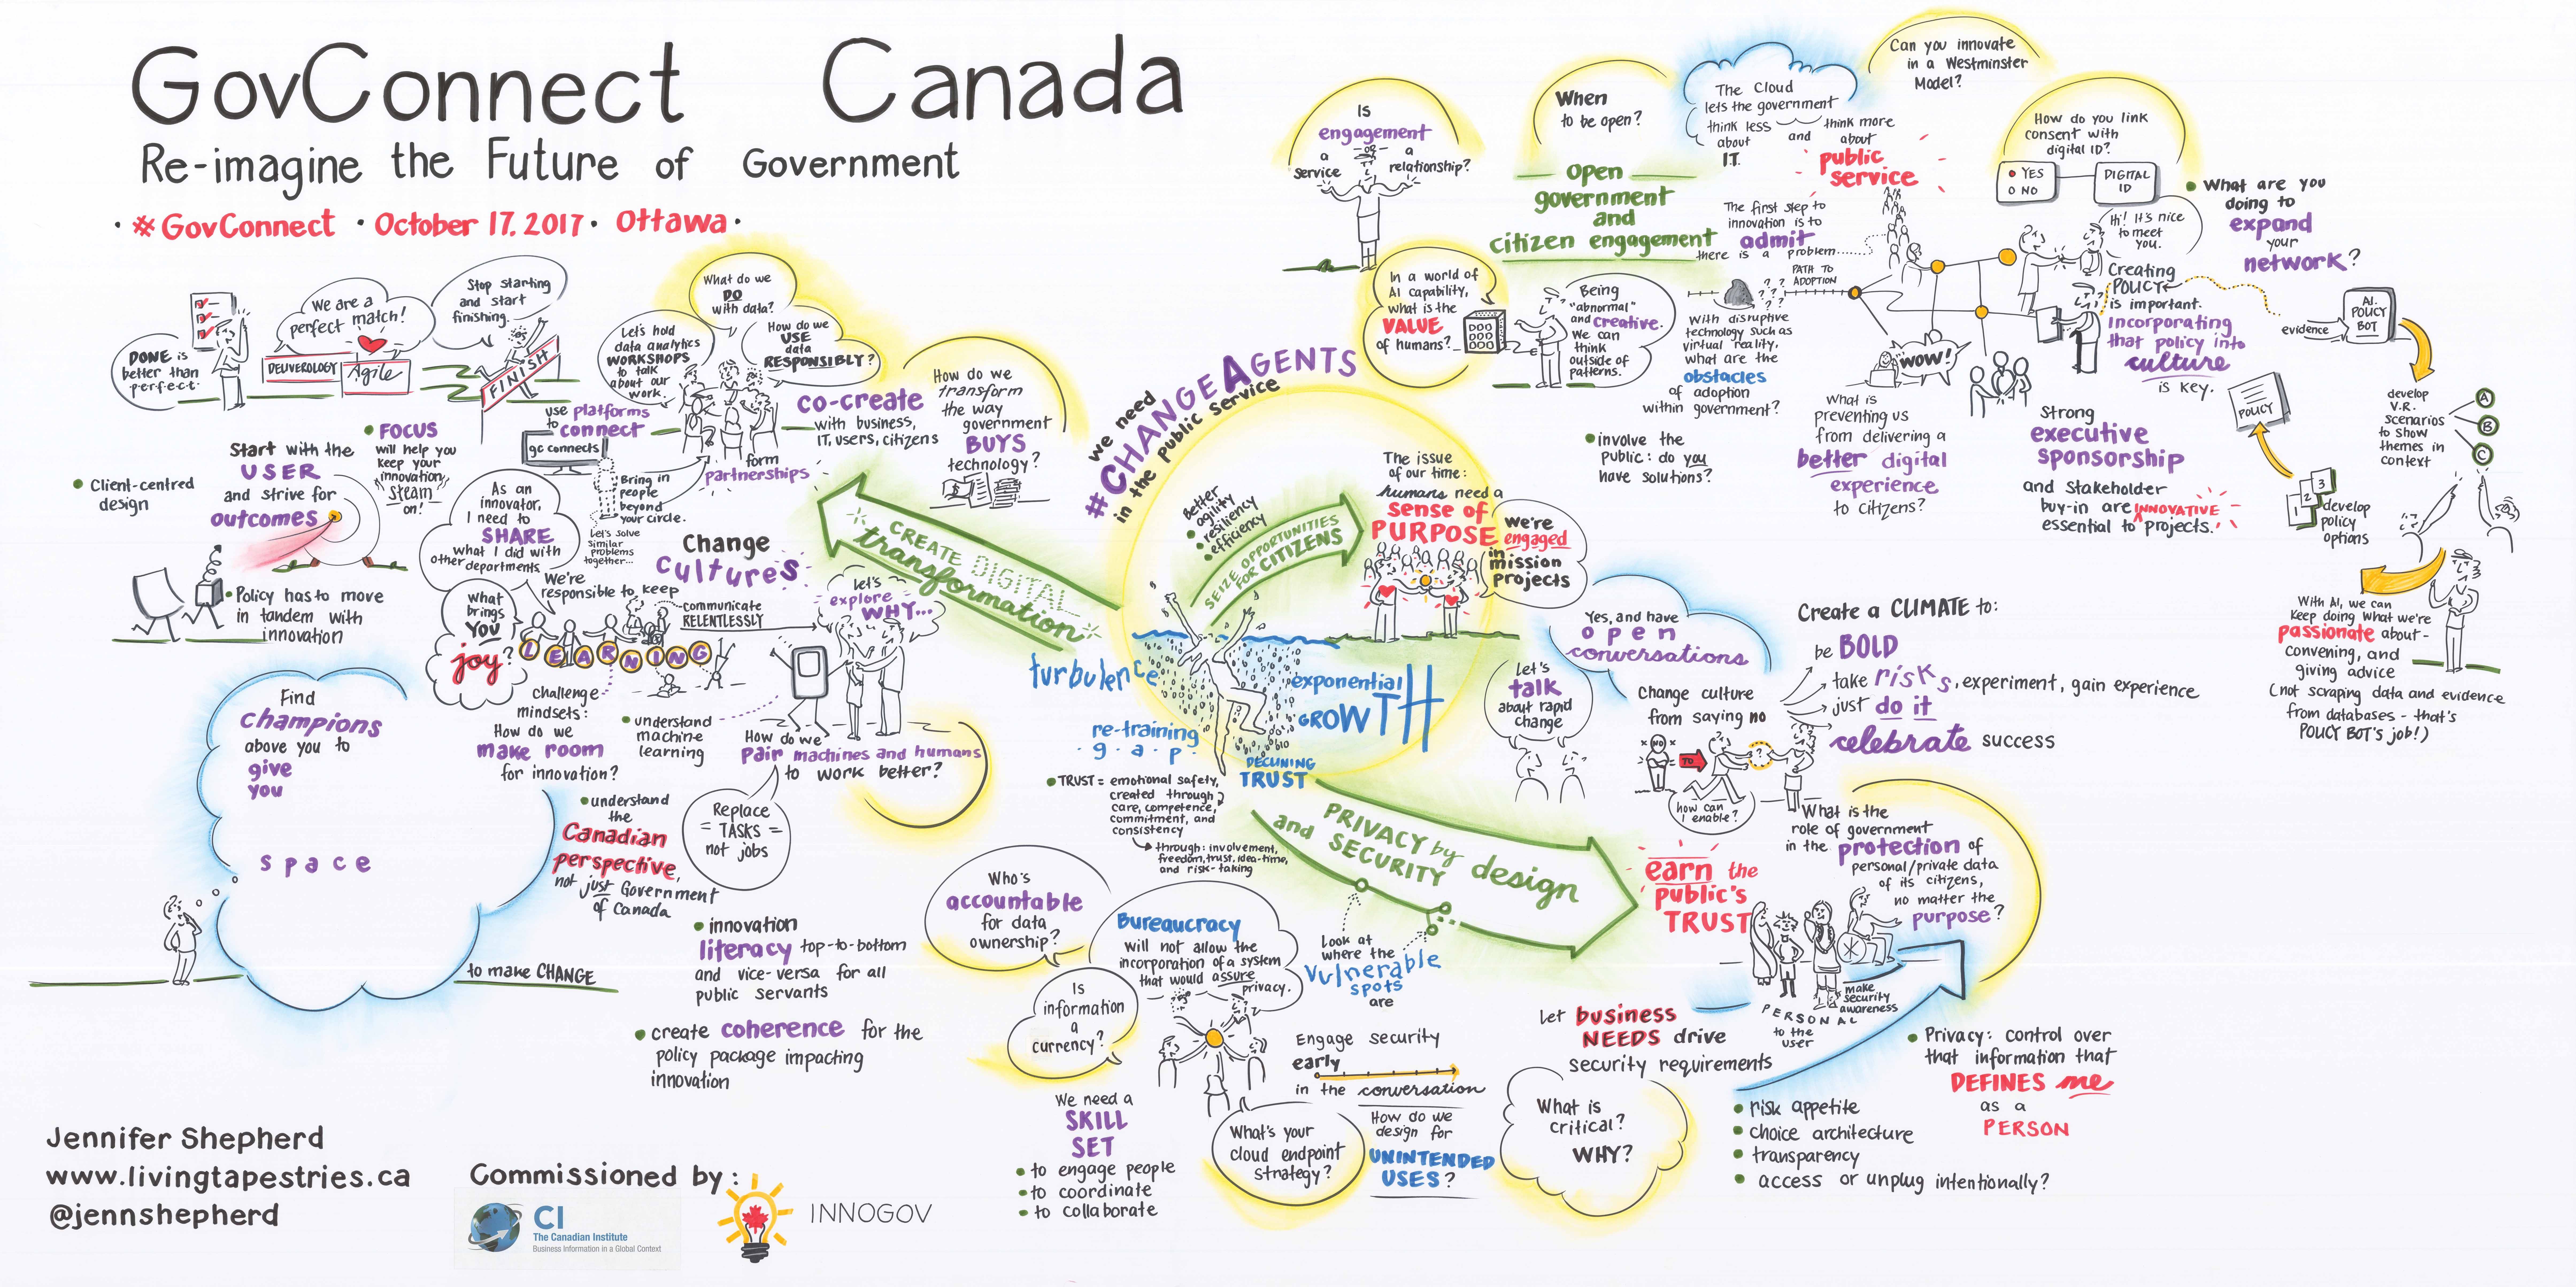 GovConnect Canada
Re-imagine the Future of Government
• #GovConnect • October 17, 2017 • Ottawa •
DONE is
better than
perfect.
We are a
perfect match!
DELIVEROLOGY
Agile
Stop starting
and start
finishing.
FINISH
What do we
DO
with data?
Let's hold
data analytics
WORKSHOPS
to talk
about our
work.
How do we
USE
data
RESPONSIBLY?
use platforms
to connect
gc connects
co-create
with business,
IT, users, citizens
form
partnerships
How do we
transform
the way
government
BUYS
technology?
• Client-centred
design
Start with the
USER
and strive for
outcomes
• FOCUS
will help you
keep your
innovation
steam
on!
As an
innovator,
I need to
SHARE
what I did with
other departments.
Bring in
people
beyond
your circle.
Let's solve
similar
problems
together...
Change
cultures
• Policy has to move
in tandem with
innovation
We're
responsible to keep
LEARNING
communicate
RELENTLESSLY
Let's
explore
WHY...
what
brings
YOU
joy?
challenge
mindsets:
How do we
make room
for innovation?
• understand
machine
learning
How do we
pair machines and humans
to work better?
Replace
= TASKS =
not jobs
Find
champions
above you to
give
you
space
to make CHANGE
• understand
the
Canadian
perspective,
not just Government
of Canada
• innovation
literacy top-to-bottom
and vice-versa for all
public servants
• create coherence for the
policy package impacting
innovation
CREATE DIGITAL
transformation
we need
#CHANGE AGENTS
in the public service
better
• agility
• resiliency
• efficiency
SEIZE OPPORTUNITIES
FOR CITIZENS
The issue
of our time:
humans need a
sense of
PURPOSE
We're
engaged
in
mission
projects
turbulence
exponential
GROWTH
re-training
g • a • p
DECLINING
TRUST
• TRUST = emotional safety,
created through
care, competence,
commitment, and
consistency
through: involvement,
freedom, trust, idea-time,
and risk-taking
PRIVACY by design
and SECURITY
Is
engagement
a service
-or-
a relationship?
When
to be open?
Open
government
and
citizen engagement
The Cloud
lets the government
think less about I.T.
and
think more about
public
service
Can you innovate
in a Westminster
Model?
How do you link
consent with
digital ID?
YES
NO
DIGITAL
ID
Hi! It's nice
to meet
you.
• What are you
doing to
expand
your
network?
The first step to
innovation is to
admit
there is a problem
PATH TO
ADOPTION
In a world of
AI capability,
what is the
VALUE
of humans?
Being
"abnormal"
and creative.
We can
think
outside of
patterns.
With disruptive
technology such as
virtual reality,
what are the
obstacles
of adoption
within government?
• involve the
public: do you
have solutions?
WOW!
What is
preventing us
from delivering a
better digital
experience
to citizens?
Creating
POLICY
is important.
Incorporating
that policy into
culture
is key.
Strong
executive
sponsorship
and stakeholder
buy-in are
essential to
INNOVATIVE
projects.
evidence
A.I.
POLICY
BOT
develop
V.R.
scenarios
to show
themes in
context
A
B
C
POLICY
1
2
3
develop
policy
options
With AI, we can
keep doing what we're
passionate about-
convening, and
giving advice
(not scraping data and evidence
from databases - that's
POLICY BOT's job!)
Yes, and have
open
conversations
Let's
talk
about rapid
change
Change culture
from saying no
NO
TO
?
how can
I enable?
Create a CLIMATE to:
be BOLD
take risks, experiment, gain experience
just do it
celebrate success
earn the
public's
TRUST
What is the
role of government
in the protection of
personal/private data
of its citizens,
no matter the
purpose?
make
security
awareness
PERSONAL
to the
user
Who's
accountable
for data
ownership?
Bureaucracy
will not allow the
incorporation of a system
that would assure
privacy.
Is
information
a
currency?
Look at
where the
vulnerable
spots
are
Engage security
early
in the conversation
Let business
NEEDS drive
security requirements
We need a
SKILL
SET
• to engage people
• to coordinate
• to collaborate
What's your
cloud endpoint
strategy?
How do we
design for
UNINTENDED
USES?
What is
critical?
WHY?
• Privacy: control over
that information that
DEFINES me
as a
PERSON
• risk appetite
• choice architecture
• transparency
• access or unplug intentionally?
Jennifer Shepherd
www.livingtapestries.ca
@jennshepherd
Commissioned by:
CI
The Canadian Institute
Business Information in a Global Context
INNOGOV